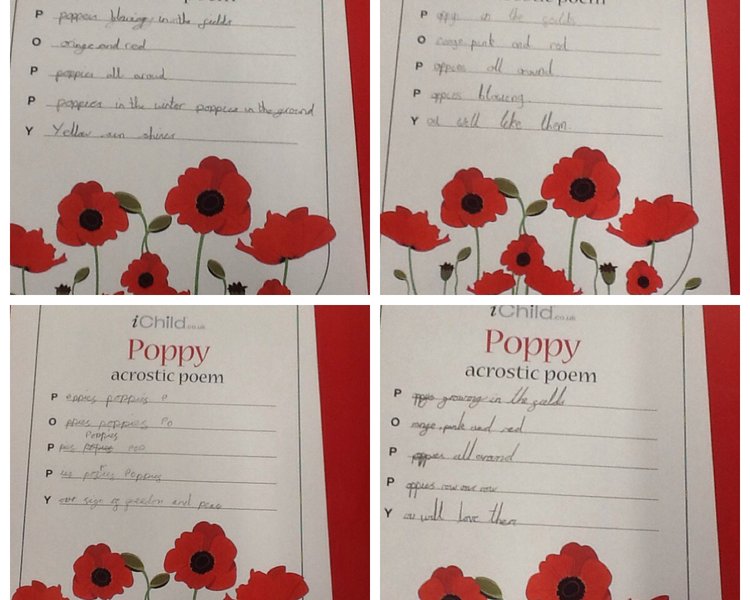 acrostic poem
P poppies blowing in the feilds
O oringe and red
P poppies all around
P poppies in the winter poppies in the ground
Y Yellow sun shines
acrostic poem
P oppys in the feilds
O orange pink and red
P oppies all around
P oppies blowing.
Y ou will like them.
iChild.co.uk
Poppy
acrostic poem
P oppies poppies P
O ppies poppies Po
Poppies
P pies
P ies Poppies
Y our sign of freedom and peace
iChild.co.uk
Poppy
acrostic poem
P oppys growing in the feilds
O range, pink and red
P oppies all around
P oppies row on row
Y ou will love them